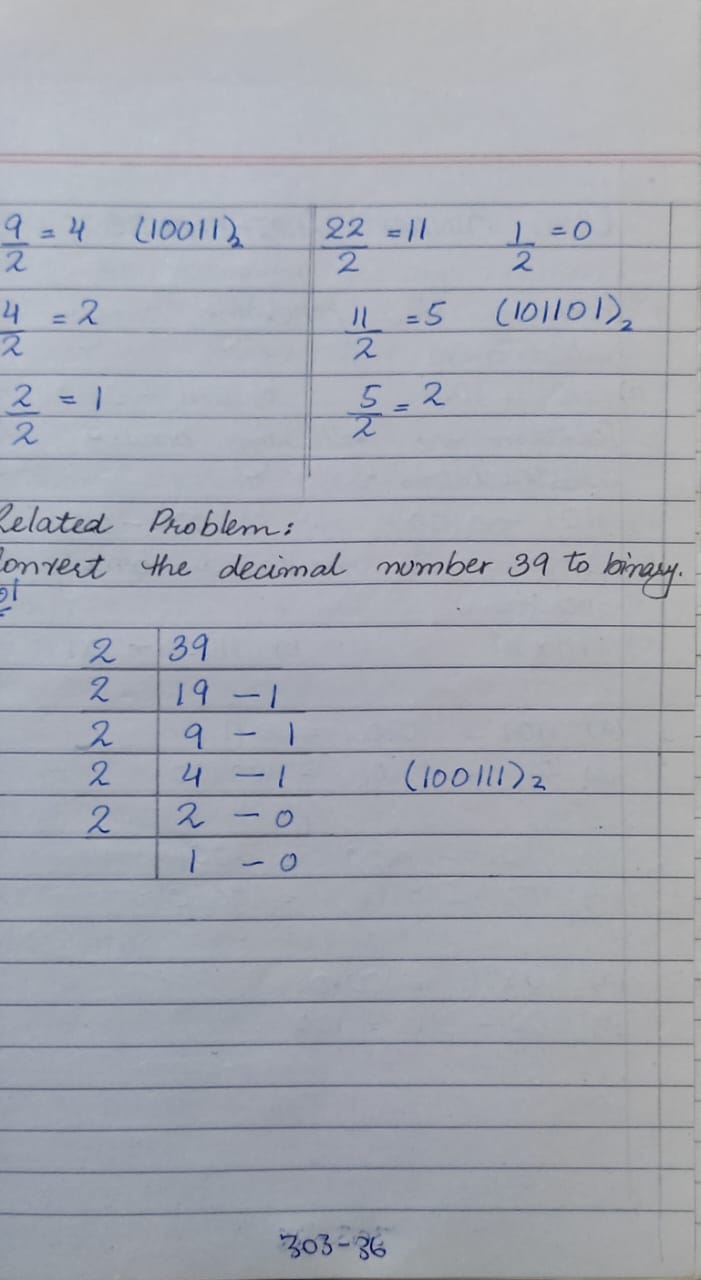 9/2 = 4 (10011)₂
4/2 = 2
2/2 = 1
22/2 = 11 1/2 = 0
11/2 = 5 (101101)₂
5/2 = 2
Related Problem:
Convert the decimal number 39 to binary.
Sol
2 | 39
2 | 19 - 1
2 | 9 - 1
2 | 4 - 1 (100111)₂
2 | 2 - 0
1 - 0
303-36